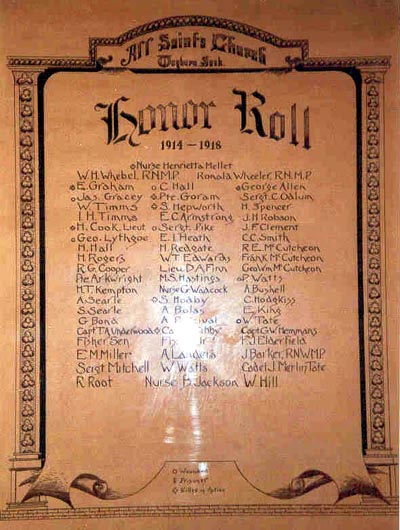 All Saints Church
Weyburn Sask.
Honor Roll
1914 – 1918
Nurse Henrietta Mellet
W. H. Whebel, R.N.M.P. Ronald Wheeler, R.N.M.P
E. Graham C. Hall George Allen
Jas. Gracey Pte. Goram Sergt. C. Odlum
W. Timms S. Hepworth H. Spencer
J. H. Timms E. C. Armstrong J. H. Robson
H. Cook, Lieut Sergt. Pike J. McClement
Geo. Lythgoe E. I. Heath C. C. Smith
H. Hall H. Redgate R. E. McCutcheon
H. Rogers W. T. Edwards Frank McCutcheon
R. G. Cooper Lieu. D. A. Finn Gordon McCutcheon
Pte Arkwright M. S. Hastings P. Watts
H. T. Kempton Nurse G. Waacock A. Bushell
A. Searle S. Hodby C. Hodgkiss
S. Searle A. Bulas E. King
G. Bond A. W. Tate
Capt T. A. Underwood Capt G. W. Hemmans
Fisher Sen F. J. Elderfield
E. M. Miller A. J. Barker, R.N.W.M.P.
Sergt Mitchell W. Watts Cadet J. Merlin Tate
R. Root Nurse B. Jackson W. Hill
Wounded
Prisoner
Killed in Action